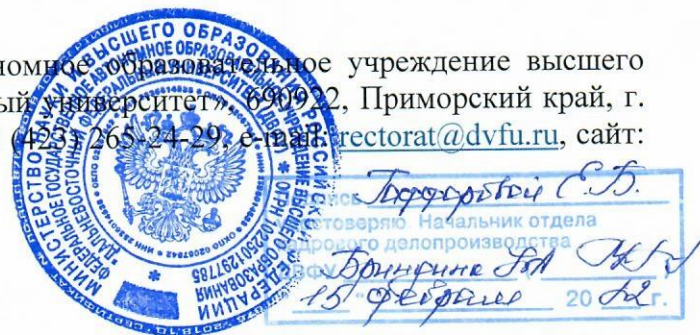 номное образовательное учреждение высшего
ый университет», 690922, Приморский край, г.
(423) 265-24-29, e-mail: rectorat@dvfu.ru, сайт:
МИНИСТЕРСТВО НАУКИ И ВЫСШЕГО ОБРАЗОВАНИЯ РОССИЙСКОЙ ФЕДЕРАЦИИ
ФЕДЕРАЛЬНОЕ ГОСУДАРСТВЕННОЕ АВТОНОМНОЕ ОБРАЗОВАТЕЛЬНОЕ УЧРЕЖДЕНИЕ ВЫСШЕГО ОБРАЗОВАНИЯ
"ДАЛЬНЕВОСТОЧНЫЙ ФЕДЕРАЛЬНЫЙ УНИВЕРСИТЕТ"
ОГРН 1022501297785
Е.Б.
удостоверяю. Начальник отдела
кадрового делопроизводства
ДВФУ
15 февраля 2022 г.